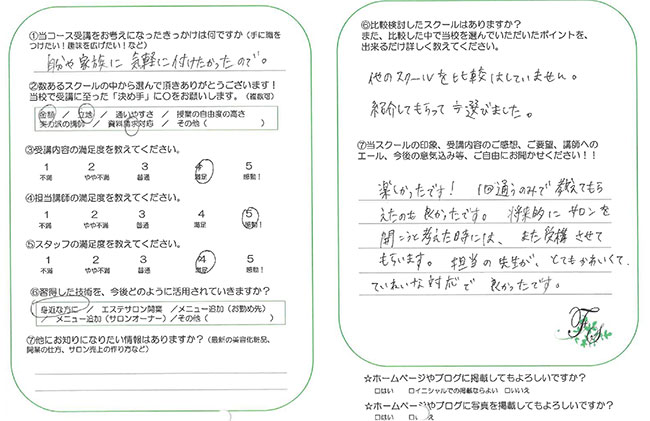 ①当コース受講をお考えになったきっかけは何ですか（手に職を
つけたい！趣味を広げたい！など）
自分や家族に 気軽に付けたかったので。
②数あるスクールの中から選んで頂きありがとうございます！
当校で受講に至った「決め手」に〇をお願いします。（複数可）
金額 ／ 立地 ／ 通いやすさ ／ 授業の自由度の高さ
実力派の講師 ／ 資料請求対応 ／ その他（ ）
③受講内容の満足度を教えてください。
1 2 3 4 5
不満 やや不満 普通 満足 感動！
④担当講師の満足度を教えてください。
1 2 3 4 5
不満 やや不満 普通 満足 感動！
⑤スタッフの満足度を教えてください。
1 2 3 4 5
不満 やや不満 普通 満足 感動！
⑥習得した技術を、今後どのように活用されていきますか？
身近な方に ／ エステサロン開業 ／メニュー追加（お勤め先）
／メニュー追加（サロンオーナー）／その他（ ）
⑦他にお知りになりたい情報はありますか？（最新の美容化粧品、
開業の仕方、サロン売上の作り方など）
⑥比較検討したスクールはありますか？
また、比較した中で当校を選んでいただいたポイントを、
出来るだけ詳しく教えてください。
他のスクールを比較はしていません。
紹介してもらって選びました。
⑦当スクールの印象、受講内容のご感想、ご要望、講師への
エール、今後の意気込み等、ご自由にお聞かせください！！
楽しかったです！ 1回通うのみで教えてもら
えたのも良かったです。 将来的に サロンを
開こうと考えた時には、また受講 させて
もらいます。 担当の先生が、とてもかわいくて
ていねいな対応で 良かったです。
☆ホームページやブログに掲載してもよろしいですか？
□はい □イニシャルでの掲載ならよい □いいえ
☆ホームページやブログに写真を掲載してもよろしいですか？
□はい □いいえ